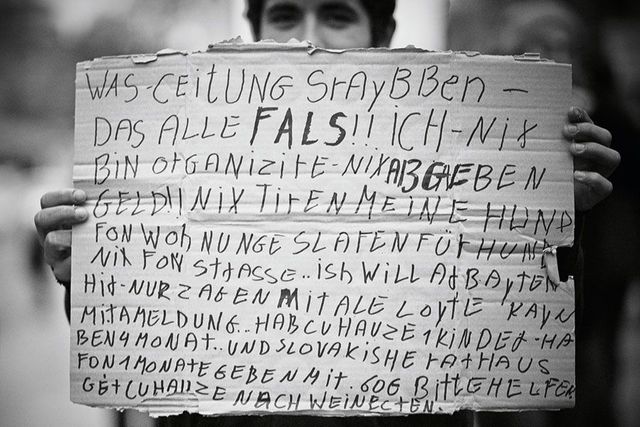 WAS-CEitUNG SrAyBBen -
DAS ALLE FALS!! iCH-NiX
BiN OrGANIZirE-NiXABGAEBEN
GELD!! NiX TirEN MEiNE HUND
FON WOhNUNGE SLAFEN FÜr HUNT
NiX FON StrASSE.. iSh WiLL ArBAyTEN
Hir-NUR ZAGEN MiT ALE LOyTE KAyN
MiTAMELDUNG.. HAB CU HAUZE 1 KiNDEr-HA
BEN 4 MONAT.. UND SLOVAKiSHE rATHAUS
FON 1 MONATE GEBEN MiT.. 60€ BiTTE HELFEN
GErCUHAUZE NACH WEiNECTEN.